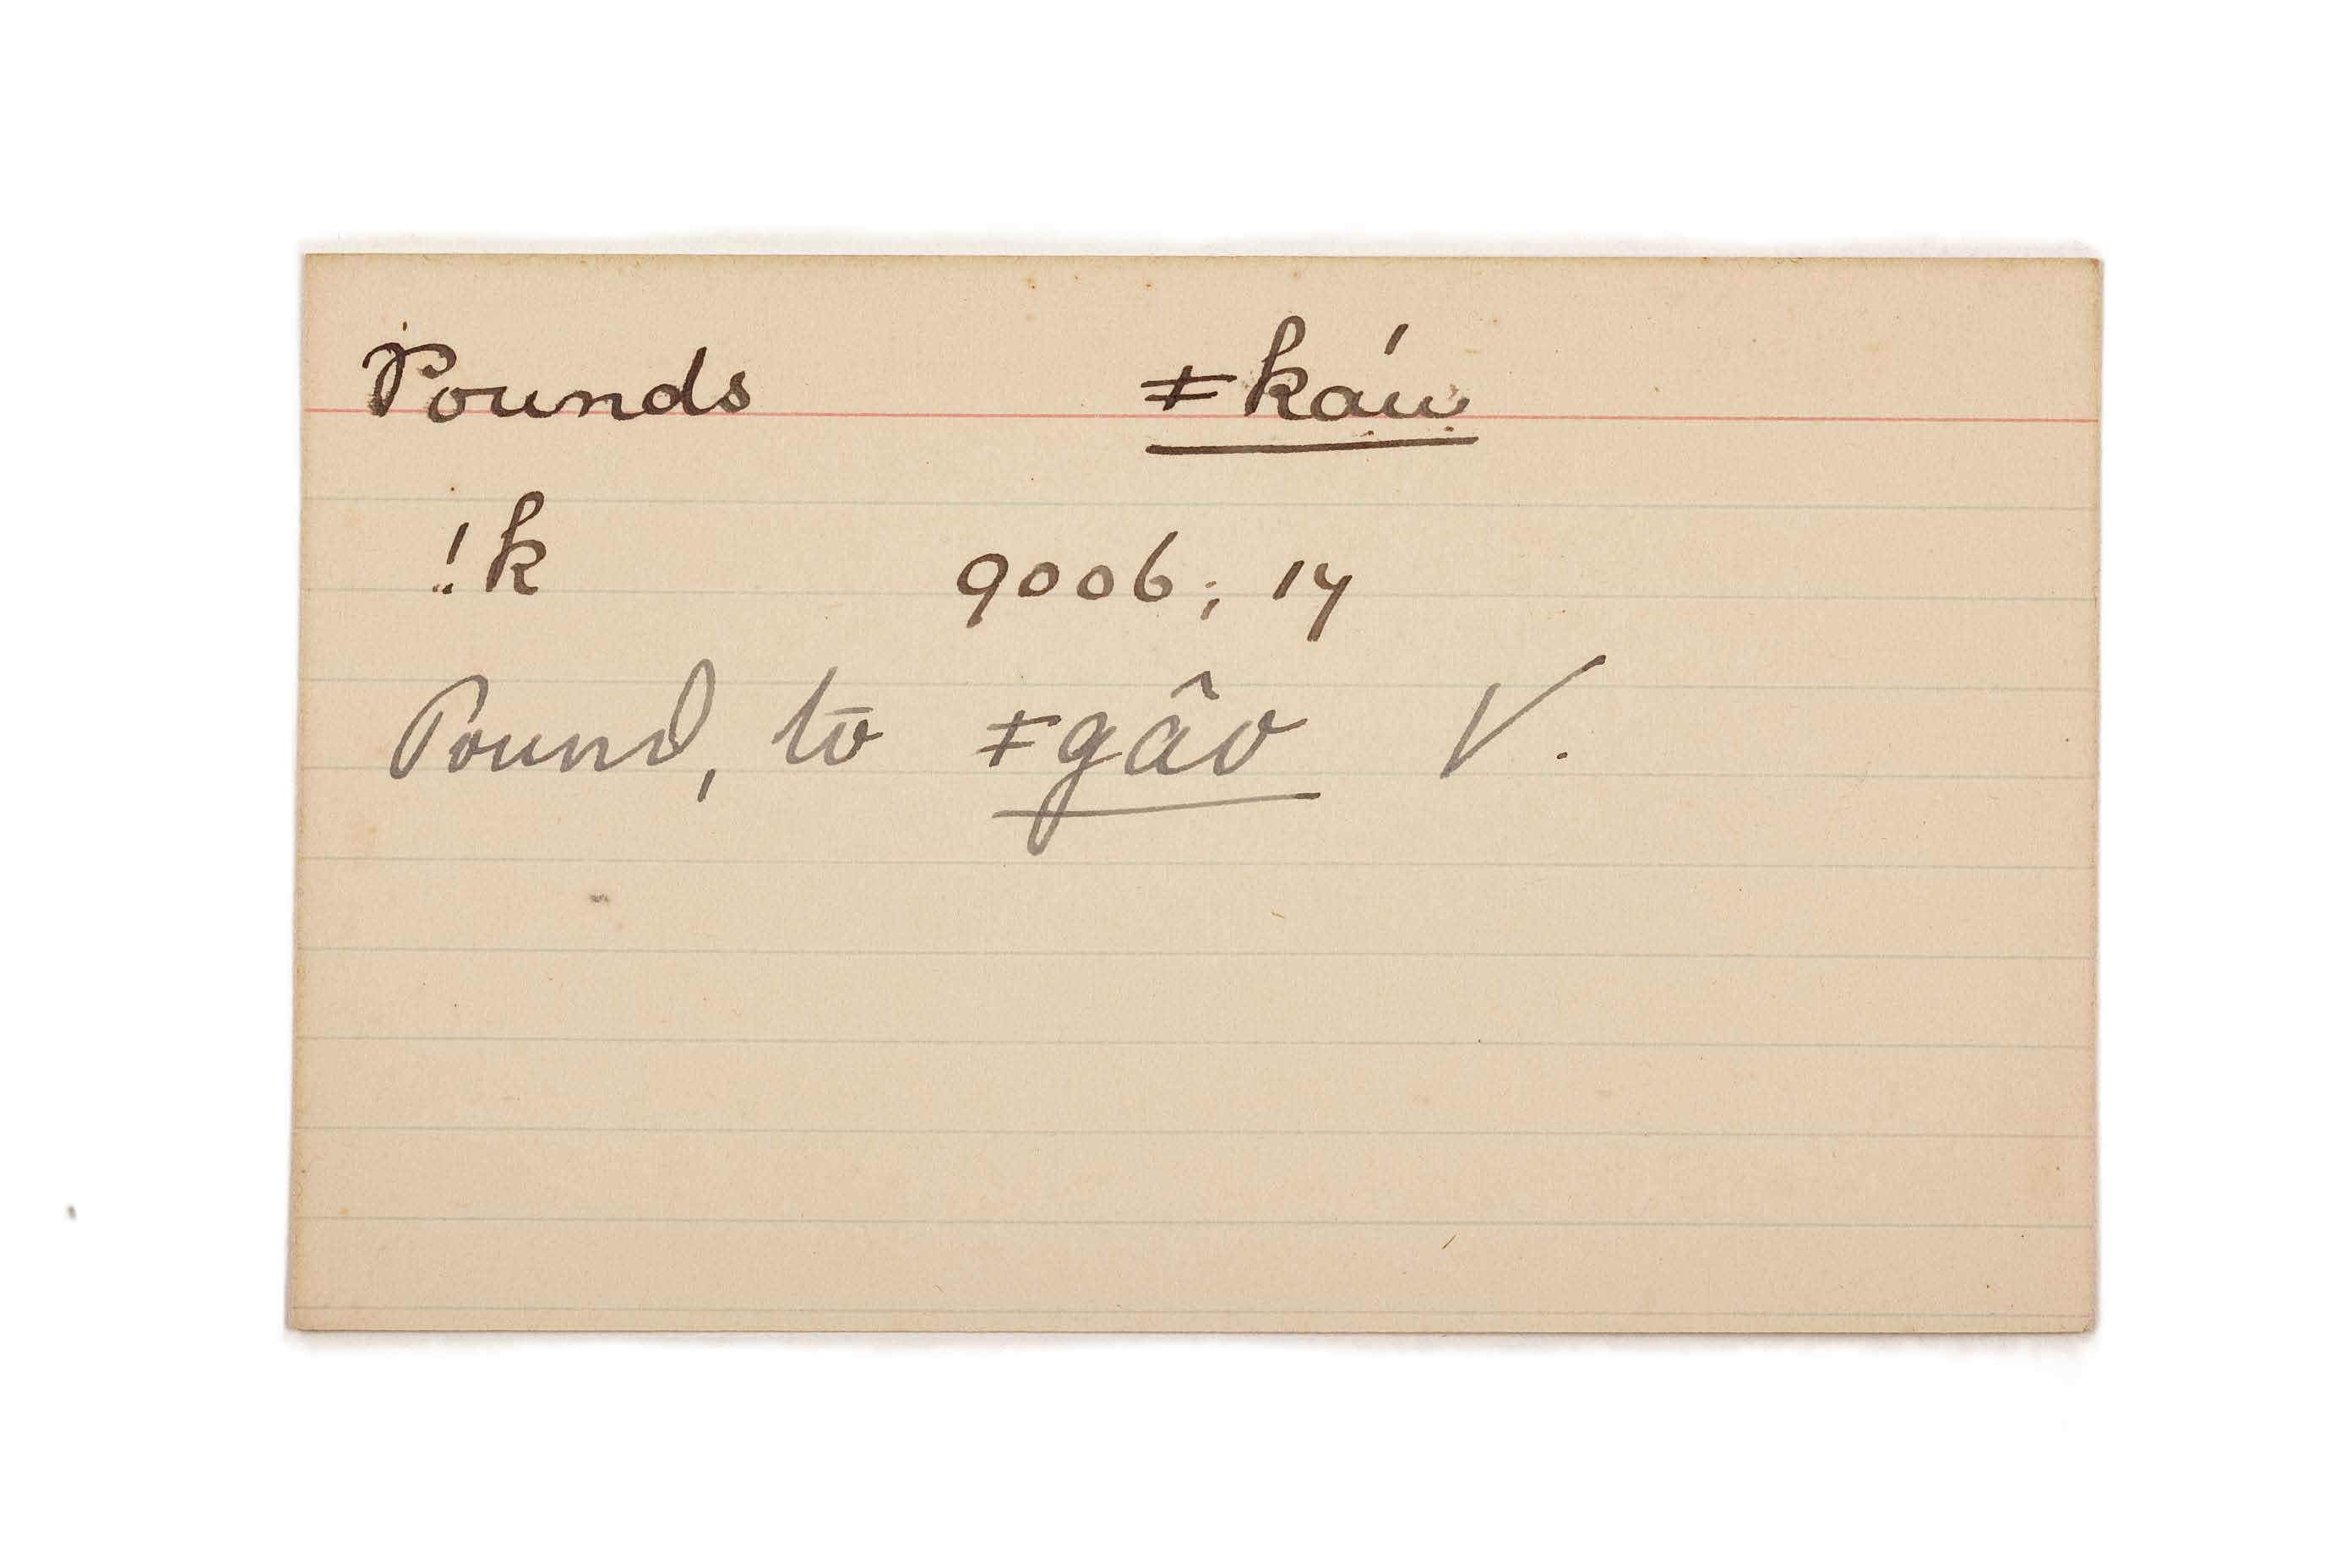 Pounds ǂkáu
!k 9006; 17
Pound, to ǂgâo V.